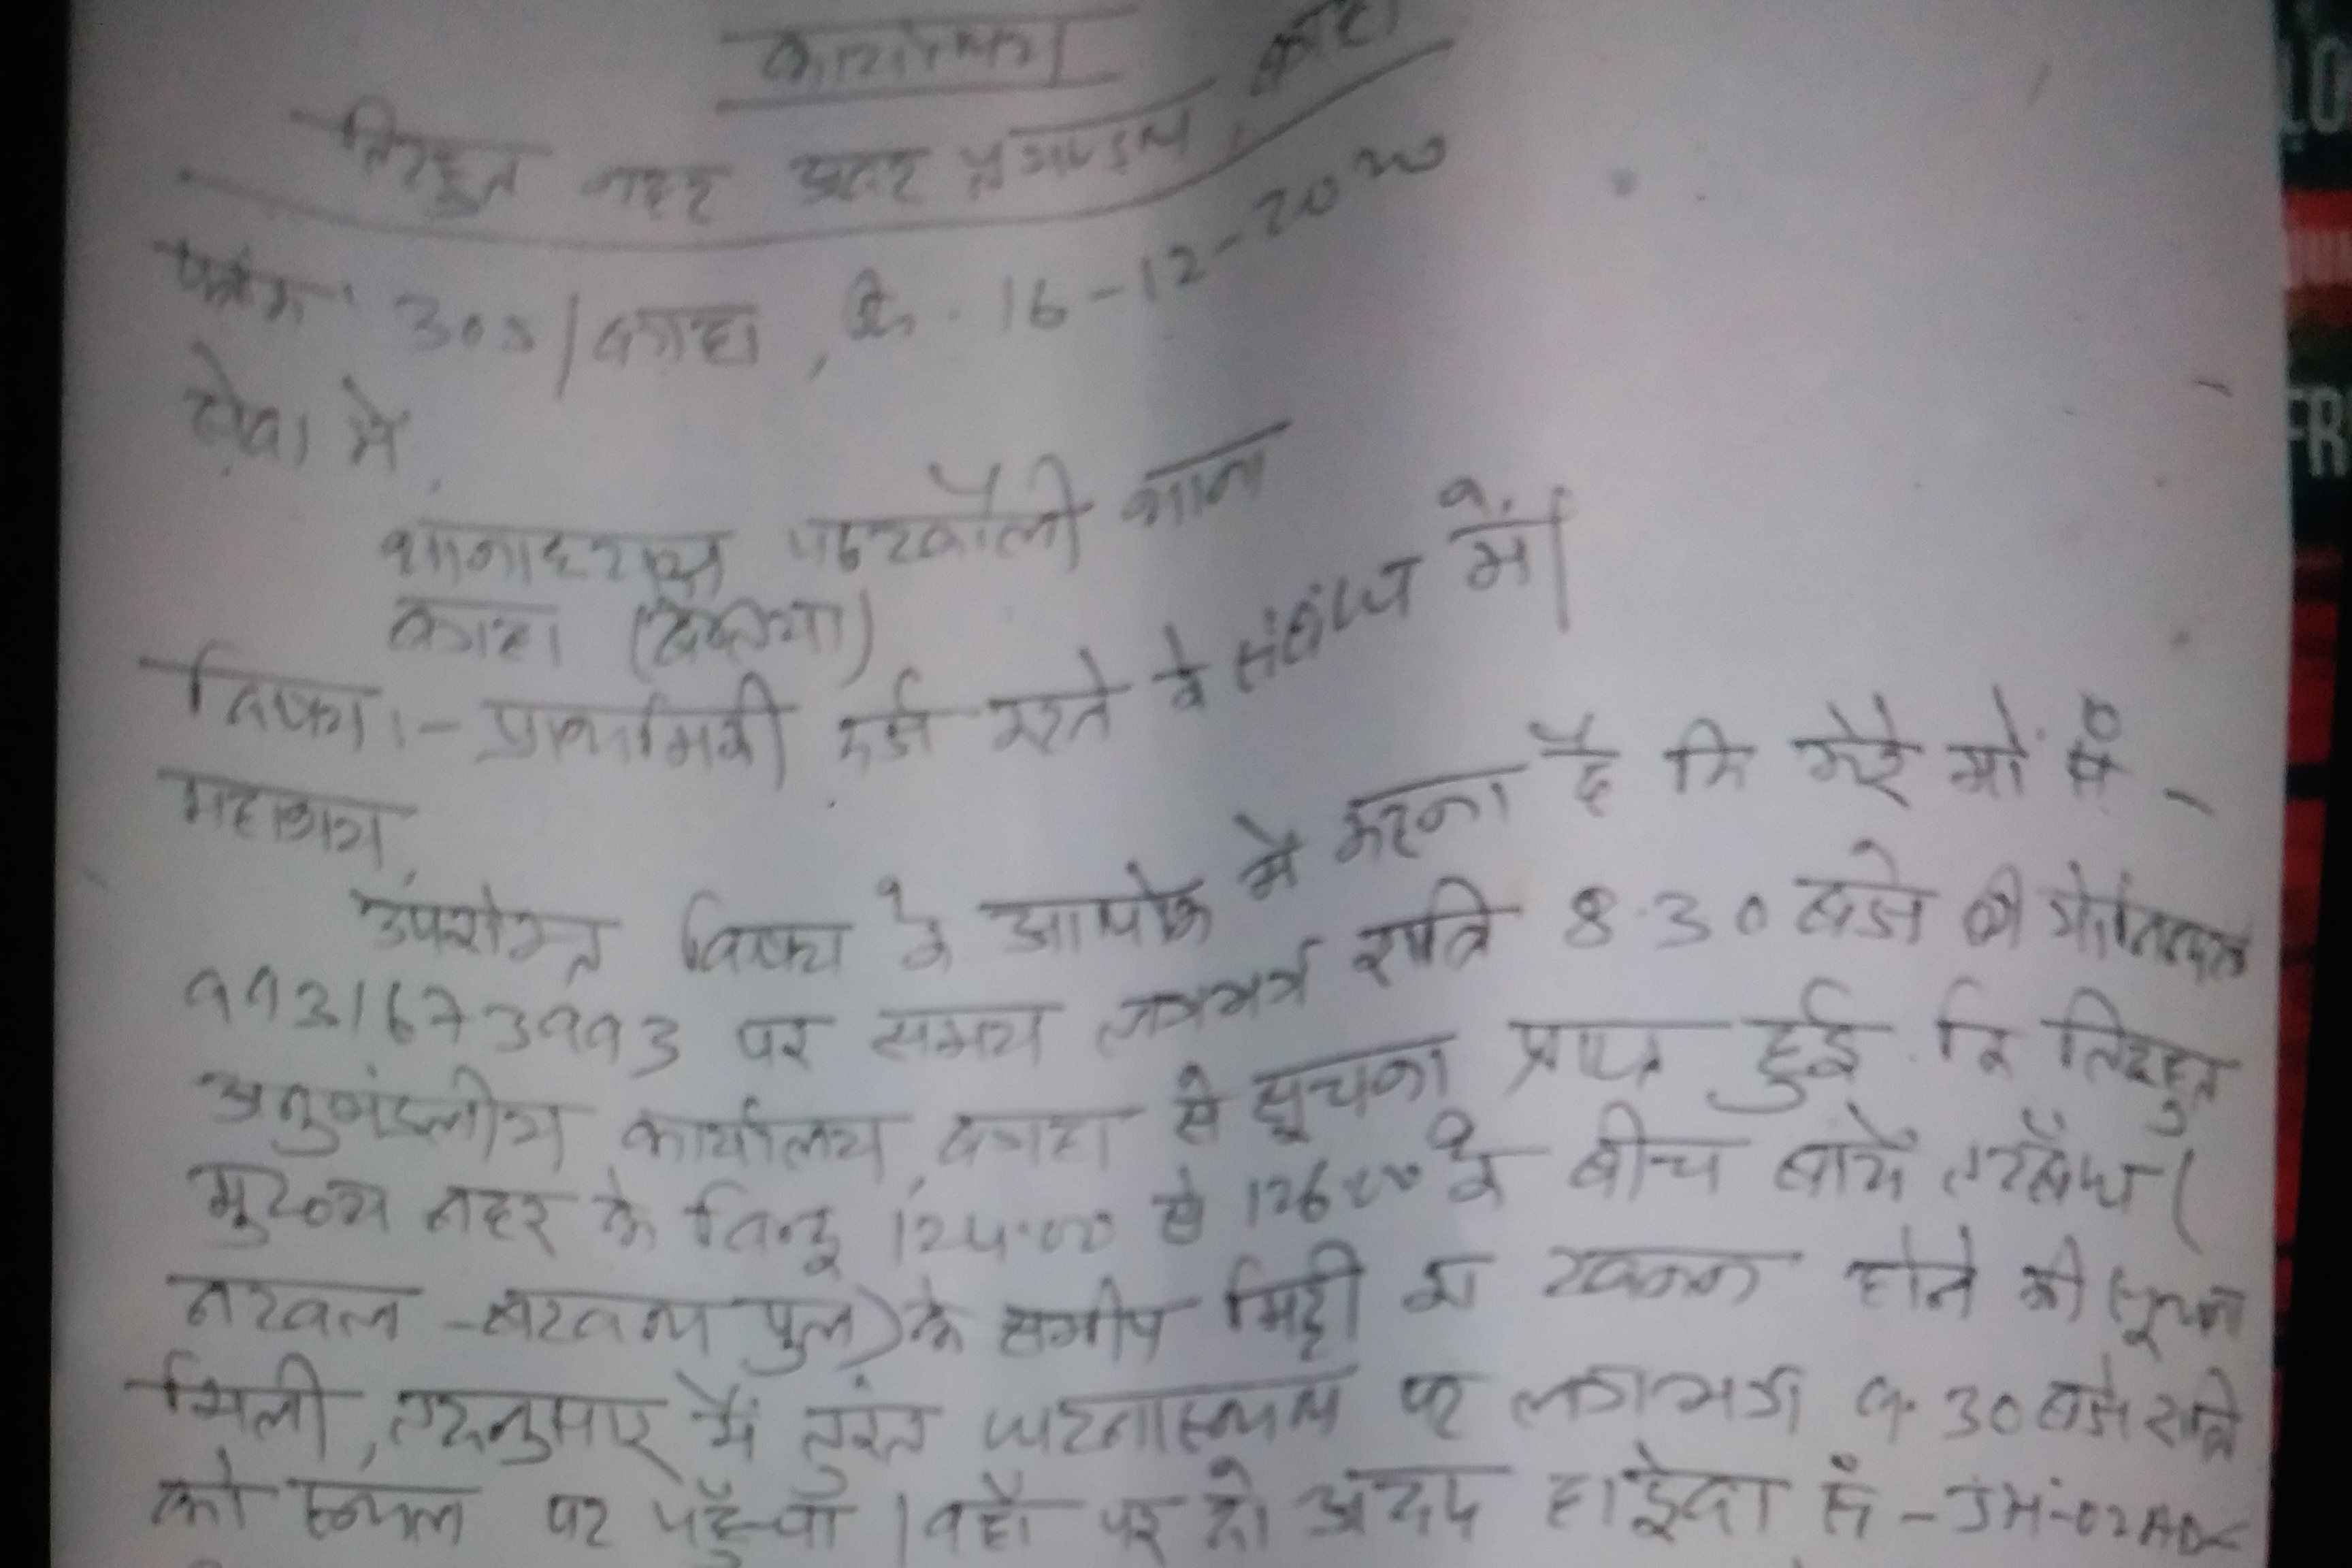 कार्यालय
तिरहुत नहर अवर प्रमण्डल, बगहा
पत्रांक 305/बगहा, दि. 16-12-2020
सेवा में,
थानाध्यक्ष पटखौली थाना
बगहा
विषय:- प्राथमिकी दर्ज करने के संबंध में।
महाशय,
उपरोक्त विषय के आलोक में कहना है कि मेरे मो. सं० -
9931673993 पर समय लगभग रात्रि 8.30 बजे
अनुमंडलीय कार्यालय, बगहा से सूचना प्राप्त हुई कि तिरहुत
मुख्य नहर के बिन्दु 124.00 से 126.00 के बीच बायें तटबंध (
नरवल -बरवल पुल) के समीप मिट्टी का खनन होने की सूचना
मिली, तदनुसार मैं तुरंत घटनास्थल पर लगभग 9.30 बजे रात्रि
को स्थल पर पहुँचा। वहाँ पर दो अदद हाईवा सं -JH-02
LO
FR